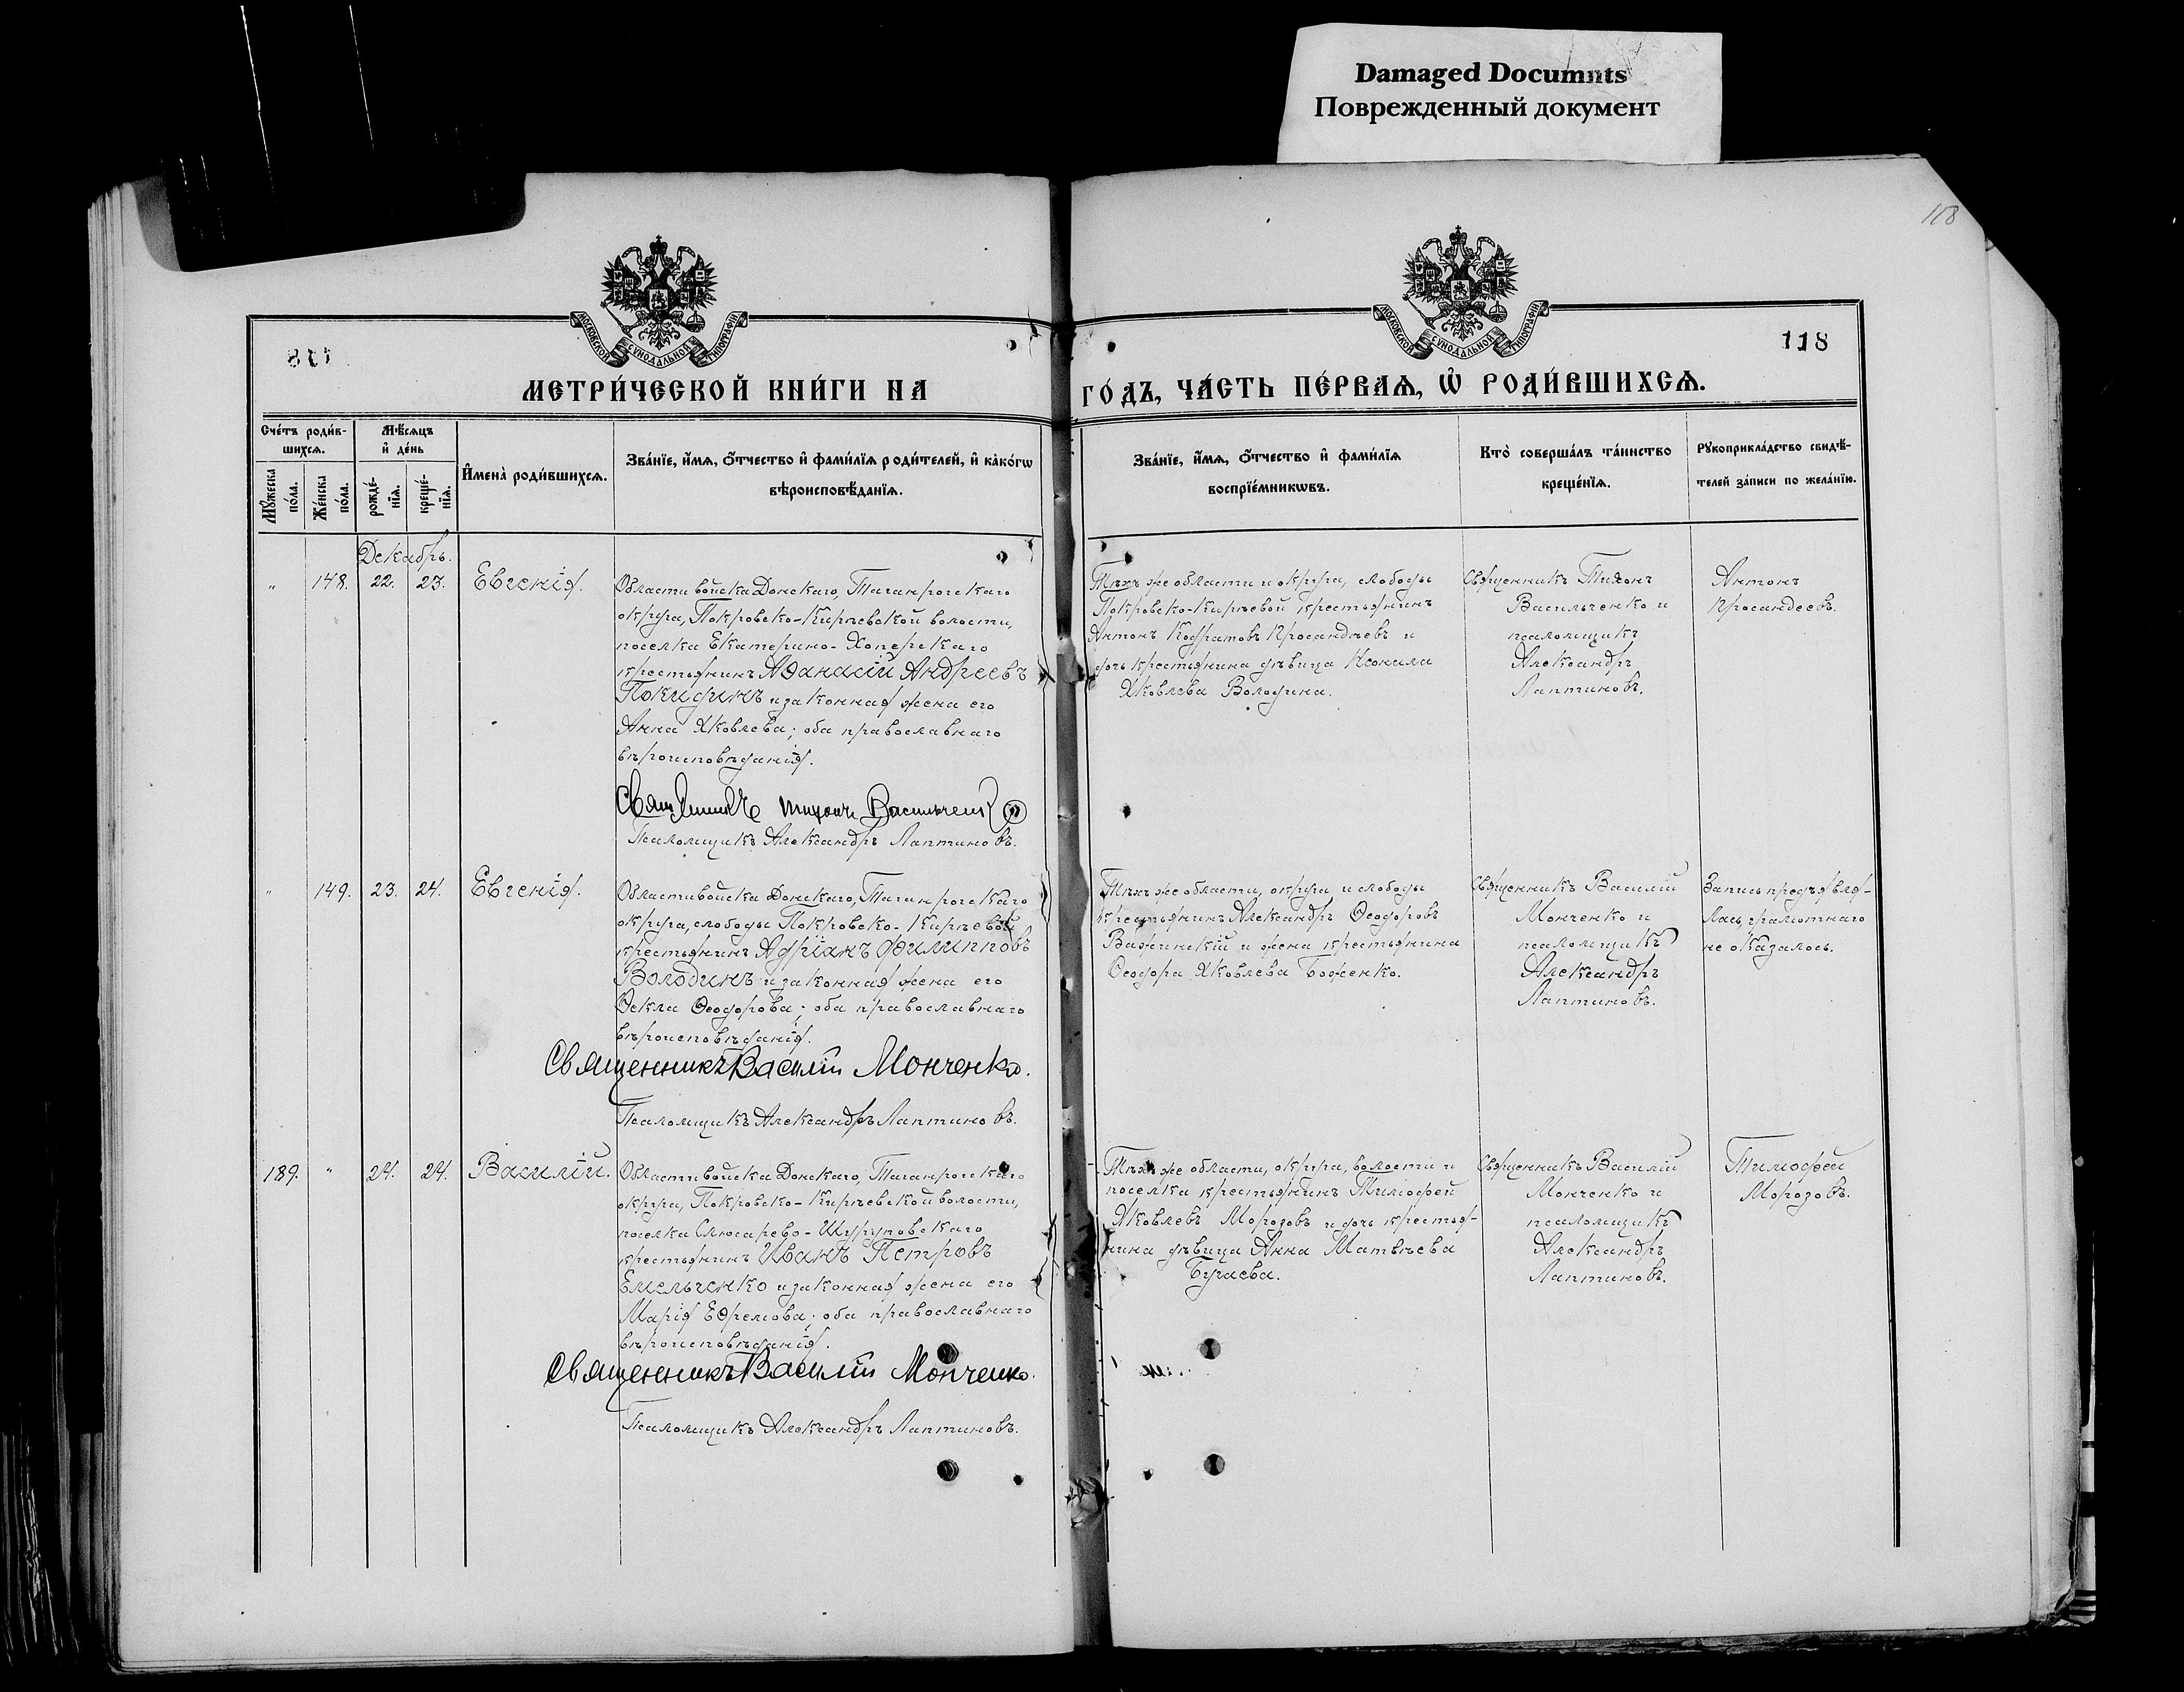 Damaged Documnts
Поврежденный документ
118
118
МЕТРИ́ЧЕСКОЙ КНИ́ГИ НА ГО́ДЪ, ЧА́СТЬ ПЕ́РВАѦ, Ѡ҆ РОДИ́ВШИХСѦ.
Сче́тъ роди́в-
шихсѧ.
Мꙋжеска
по́ла.
Же́нска
по́ла.
Мѣ́сѧцъ
и҆ де́нь
рожде́-
нїѧ.
креще́-
нїѧ.
И҆мена̀ роди́вшихсѧ.
Зва́нїе, и҆́мѧ, ѻ҆́тчество и҆ фами́лїѧ роди́телей, и҆ како́гѡ
вѣроисповѣ́данїѧ.
Зва́нїе, и҆́мѧ, ѻ҆́тчество и҆ фами́лїѧ
воспрїе́мникѡвъ.
Кто̀ соверша́лъ та́инство
креще́нїѧ.
Рꙋкоприкла́дство свидѣ́-
телей за́писи по жела́нїю.
МОСКОВСКОЙ СѴНОДАЛЬНОЙ ТИПОГРАФІИ
МОСКОВСКОЙ СѴНОДАЛЬНОЙ ТИПОГРАФІИ
Декабрь.
" 148. 22. 23. Евгенія.
Области войска Донскаго, Таганрогскаго
округа, Покровско-Кирѣевской волости,
поселка Екатерино-Хоперскаго
крестьянинъ Аѳанасій Андреевъ
Покидинъ и законная жена его
Анна Яковлева; оба православнаго
вѣроисповѣданія.
Священникъ Тихонъ Васильченко
Псаломщикъ Александръ Лаптиновъ.
Тѣхъ же области и округа, слободы
Покровско-Кирѣевой крестьянинъ
Антонъ Кодратовъ Кросандѣевъ и
дочь крестьянина дѣвица Неонила
Яковлева Володина.
Священникъ Тихонъ
Васильченко и
псаломщикъ
Александръ
Лаптиновъ.
Антонъ
Кросандеевъ.
" 149. 23. 24. Евгенія.
Области войска Донскаго, Таганрогскаго
округа, слободы Покровско-Кирѣевой
крестьянинъ Адріанъ Филипповъ
Володинъ и законная жена его
Ѳекла Ѳеодорова; оба православнаго
вѣроисповѣданія.
Священникъ Василій Монченко.
Псаломщикъ Александръ Лаптиновъ.
Тѣхъ же области, округа и слободы
крестьянинъ Александръ Ѳеодоровъ
Важинскій и жена крестьянина
Ѳеодора Яковлева Боженко.
Священникъ Василій
Монченко и
псаломщикъ
Александръ
Лаптиновъ.
Запись предъявля-
лась, грамотнаго
не оказалось.
189. " 24. 24. Василій.
Области войска Донскаго, Таганрогскаго
округа, Покровско-Кирѣевской волости,
поселка Слюсарево-Шуруповскаго
крестьянинъ Иванъ Петровъ
Емельченко и законная жена его
Марія Ефремова; оба православнаго
вѣроисповѣданія.
Священникъ Василій Монченко.
Псаломщикъ Александръ Лаптиновъ.
Тѣхъ же области, округа, волости и
поселка крестьянинъ Тимофей
Яковлевъ Морозовъ и дочь крестья-
нина дѣвица Анна Матвѣева
Бугаева.
Священникъ Василій
Монченко и
псаломщикъ
Александръ
Лаптиновъ.
Тимофей
Морозовъ.